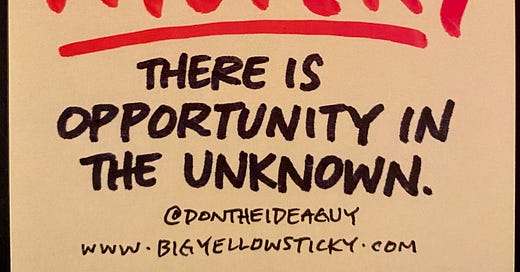 THERE IS
OPPORTUNITY IN
THE UNKNOWN.
@DONTHEIDEAGUY
WWW.BIGYELLOWSTICKY.COM